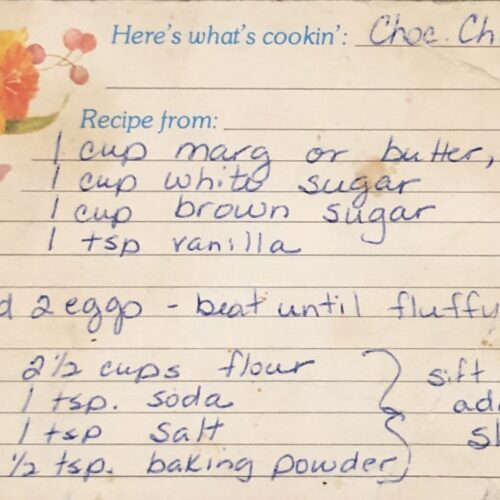 Here's what's cookin': Choc. Ch
Recipe from:
1 cup marg or butter,
1 cup white sugar
1 cup brown sugar
1 tsp vanilla
d 2 eggs - beat until fluffy
2 1/2 cups flour
1 tsp. soda
sift
1 tsp salt
add
1/2 tsp. baking powder